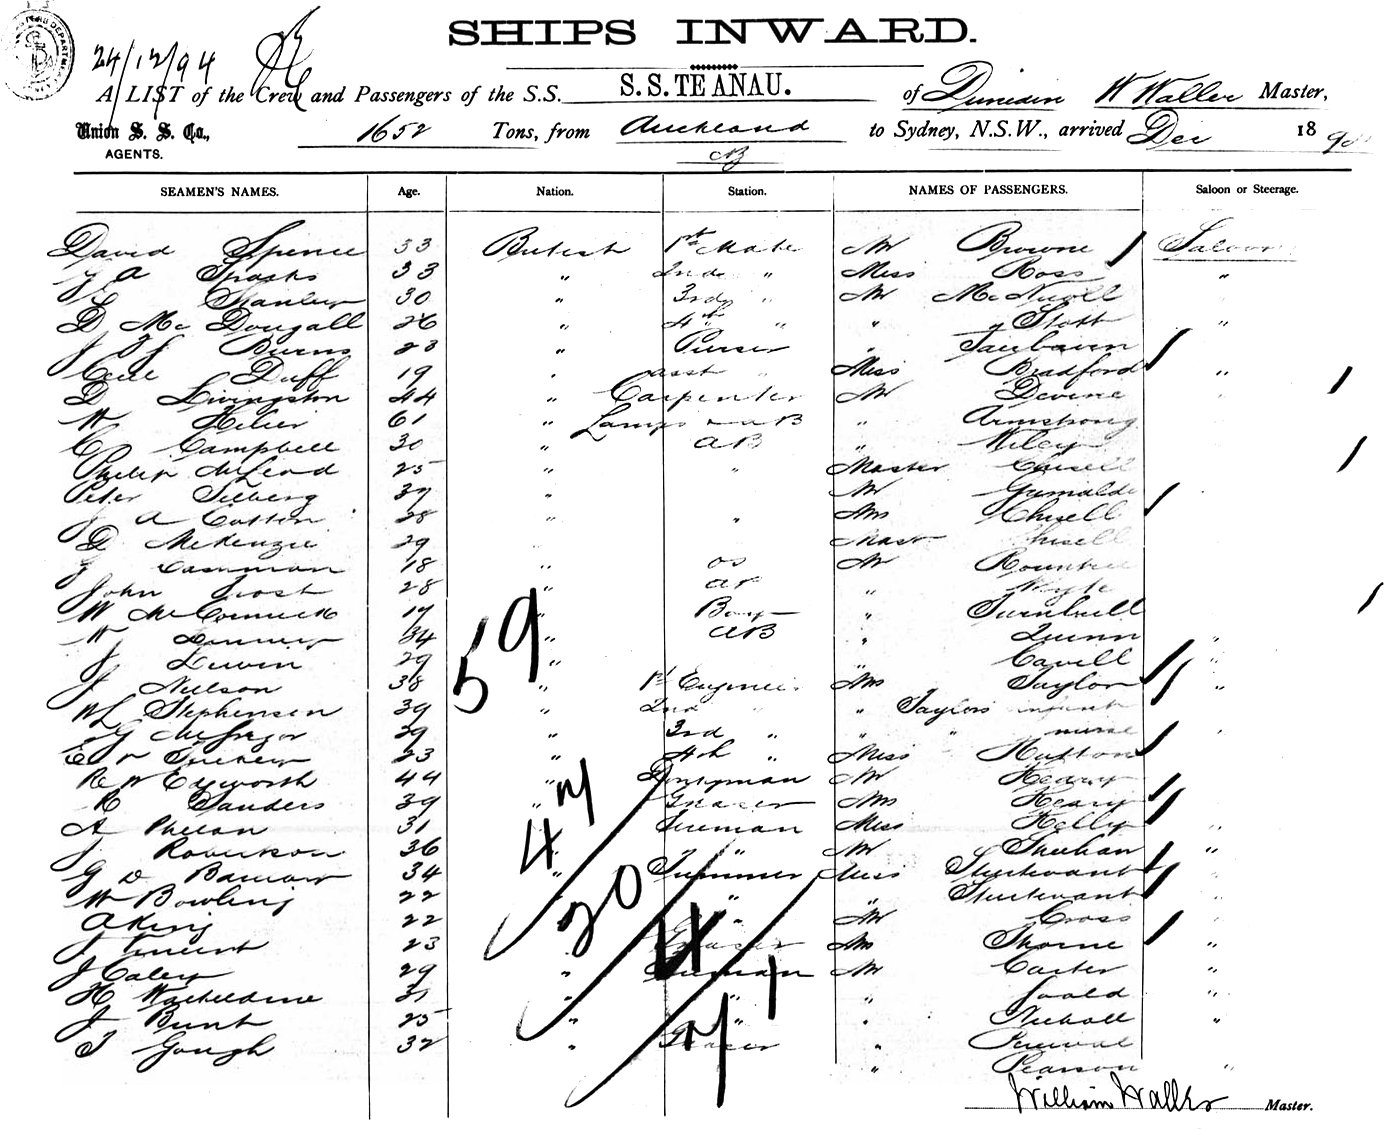 SHIPS INWARD.
24/12/94
A LIST of the Crew and Passengers of the S.S. S.S. TE ANAU. of Dunedin W Waller Master,
Union S. S. Co., 1652 Tons, from Auckland to Sydney, N.S.W., arrived Dec 18
AGENTS.
SEAMEN'S NAMES. Age. Nation. Station. NAMES OF PASSENGERS. Saloon or Steerage.
David Spence 33 British 1st Mate Mr Browne Saloon
J A Sparks 33 " 2nd " Miss Ross "
Stanley 30 " 3rd " Mr
D Mc Dougall 26 " 4th " " Stott "
Burns 23 " Purser " Fairbairn
Cecil Duff 19 " asst " Miss Bradford "
D Livingston 44 " Carpenter Mr Devine
W Hilier 61 " Lamps AB " Armstrong
C Campbell 30 " AB " Wiley
Philip McLeod 25 " " Master
Peter 37 " Mr Grimaldi
J A Cotton 28 " " Mrs Chisell
D McKenzie 29 Mast Chisell
18 " os Mr Rountree
John Frost 28 " "
W McCormick 17 " Boy " Turnbull
W 34 " AB " Quinn "
J Lewin 29 " " Cavill "
J Neilson 38 " 1st Engineer Mrs Taylor "
W L Stephensen 39 " 2nd " " Taylors infant
G McGregor 29 " 3rd " " " nurse "
23 " 4th " Miss Hutton
R W Edgworth 44 " Donkeyman Mr Heary
R Sanders 39 " Greaser Mrs Heary
A Phelan 31 Fireman Miss Kelly "
J Robertson 36 " " Mr Sheehan "
G D 34 " Trimmer Miss Sturtevant "
W Bowling 22 " " " Sturtevant "
A King 22 " " Mr Cross "
J Vincent 23 Greaser Mrs Thorne "
J Caley 29 " Fireman Mr Carter "
H 31 " " " "
J Bunt 25 " " " Nicholl "
T Gough 32 " Greaser " Percival
" Pearson "
59
47
20
4
71
William Waller Master.